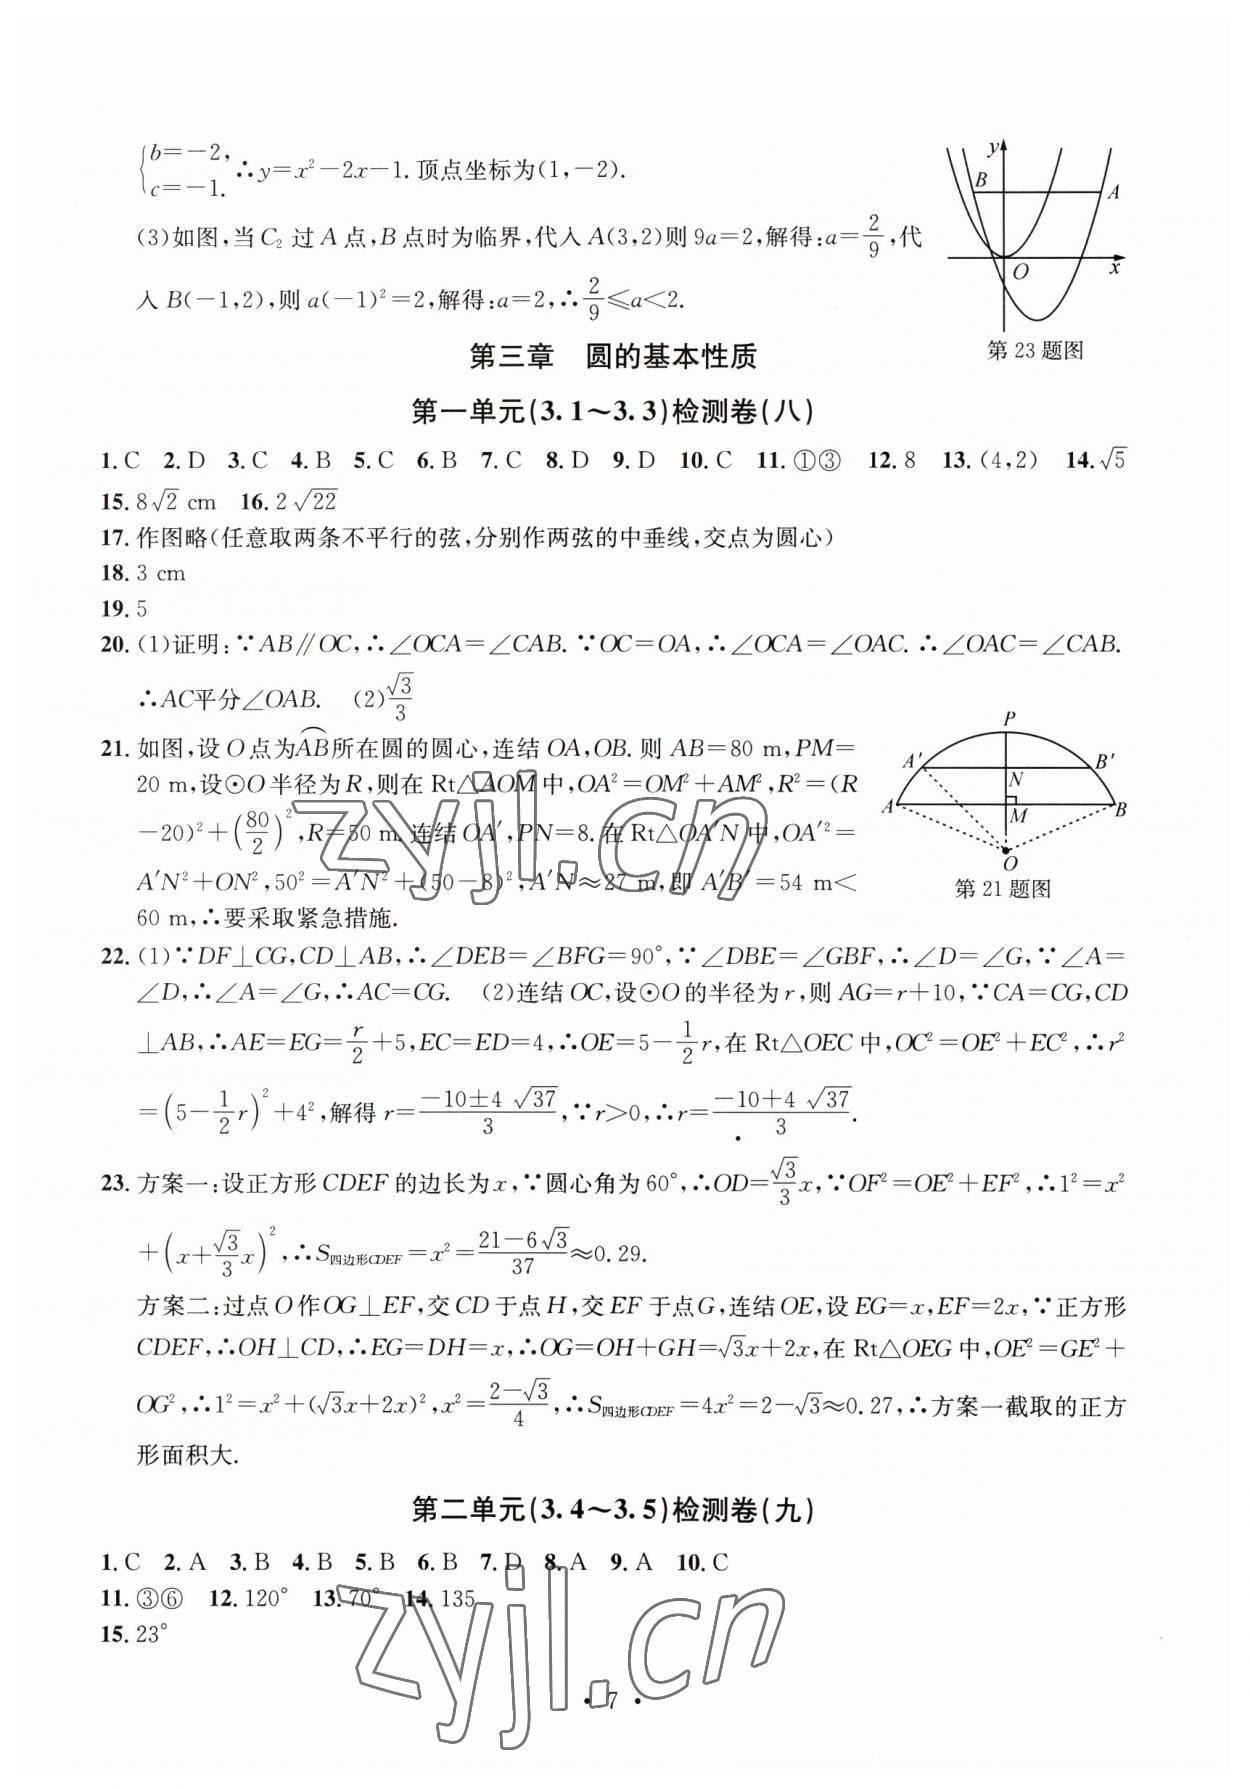 {b=-2,
c=-1. ∴y=x²-2x-1.顶点坐标为(1,-2).
(3)如图,当C₂过A点,B点时为临界,代入A(3,2)则9a=2,解得:a=2/9,代
入B(-1,2),则a(-1)²=2,解得:a=2,∴2/9≤a<2.
y
B
A
O
x
第23题图
第三章 圆的基本性质
第一单元(3.1～3.3)检测卷(八)
1.C 2.D 3.C 4.B 5.C 6.B 7.C 8.D 9.D 10.C 11.①③ 12.8 13.(4,2) 14.√5
15.8√2 cm 16.2√22
17.作图略(任意取两条不平行的弦,分别作两弦的中垂线,交点为圆心)
18.3 cm
19.5
20.(1)证明:∵AB∥OC,∴∠OCA=∠CAB.∵OC=OA,∴∠OCA=∠OAC.∴∠OAC=∠CAB.
∴AC平分∠OAB. (2)√3/3
21.如图,设O点为⌒AB所在圆的圆心,连结OA,OB.则AB=80 m,PM=
20 m,设⊙O半径为R,则在Rt△AOM中,OA²=OM²+AM²,R²=(R
-20)²+(80/2)²,R=50 m.连结OA′,PN=8.在Rt△OA′N中,OA′²=
A′N²+ON²,50²=A′N²+(50-8)²,A′N≈27 m,即A′B′=54 m<
60 m,∴要采取紧急措施.
P
A′
B′
N
A
M
B
O
第21题图
22.(1)∵DF⊥CG,CD⊥AB,∴∠DEB=∠BFG=90°,∵∠DBE=∠GBF,∴∠D=∠G,∵∠A=
∠D,∴∠A=∠G,∴AC=CG. (2)连结OC,设⊙O的半径为r,则AG=r+10,∵CA=CG,CD
⊥AB,∴AE=EG=r/2+5,EC=ED=4,∴OE=5-1/2r,在Rt△OEC中,OC²=OE²+EC²,∴r²
=(5-1/2r)²+4²,解得r=(-10±4√37)/3,∵r>0,∴r=(-10+4√37)/3.
23.方案一:设正方形CDEF的边长为x,∵圆心角为60°,∴OD=√3/3x,∵OF²=OE²+EF²,∴1²=x²
+(x+√3/3x)²,∴S四边形CDEF=x²=(21-6√3)/37≈0.29.
方案二:过点O作OG⊥EF,交CD于点H,交EF于点G,连结OE,设EG=x,EF=2x,∵正方形
CDEF,∴OH⊥CD,∴EG=DH=x,∴OG=OH+GH=√3x+2x,在Rt△OEG中,OE²=GE²+
OG²,∴1²=x²+(√3x+2x)²,x²=(2-√3)/4,∴S四边形CDEF=4x²=2-√3≈0.27,∴方案一截取的正方
形面积大.
第二单元(3.4～3.5)检测卷(九)
1.C 2.A 3.B 4.B 5.B 6.B 7.D 8.A 9.A 10.C
11.③⑥ 12.120° 13.70° 14.135
15.23°
• 7 •
zyjl.cn
zyjl.cn